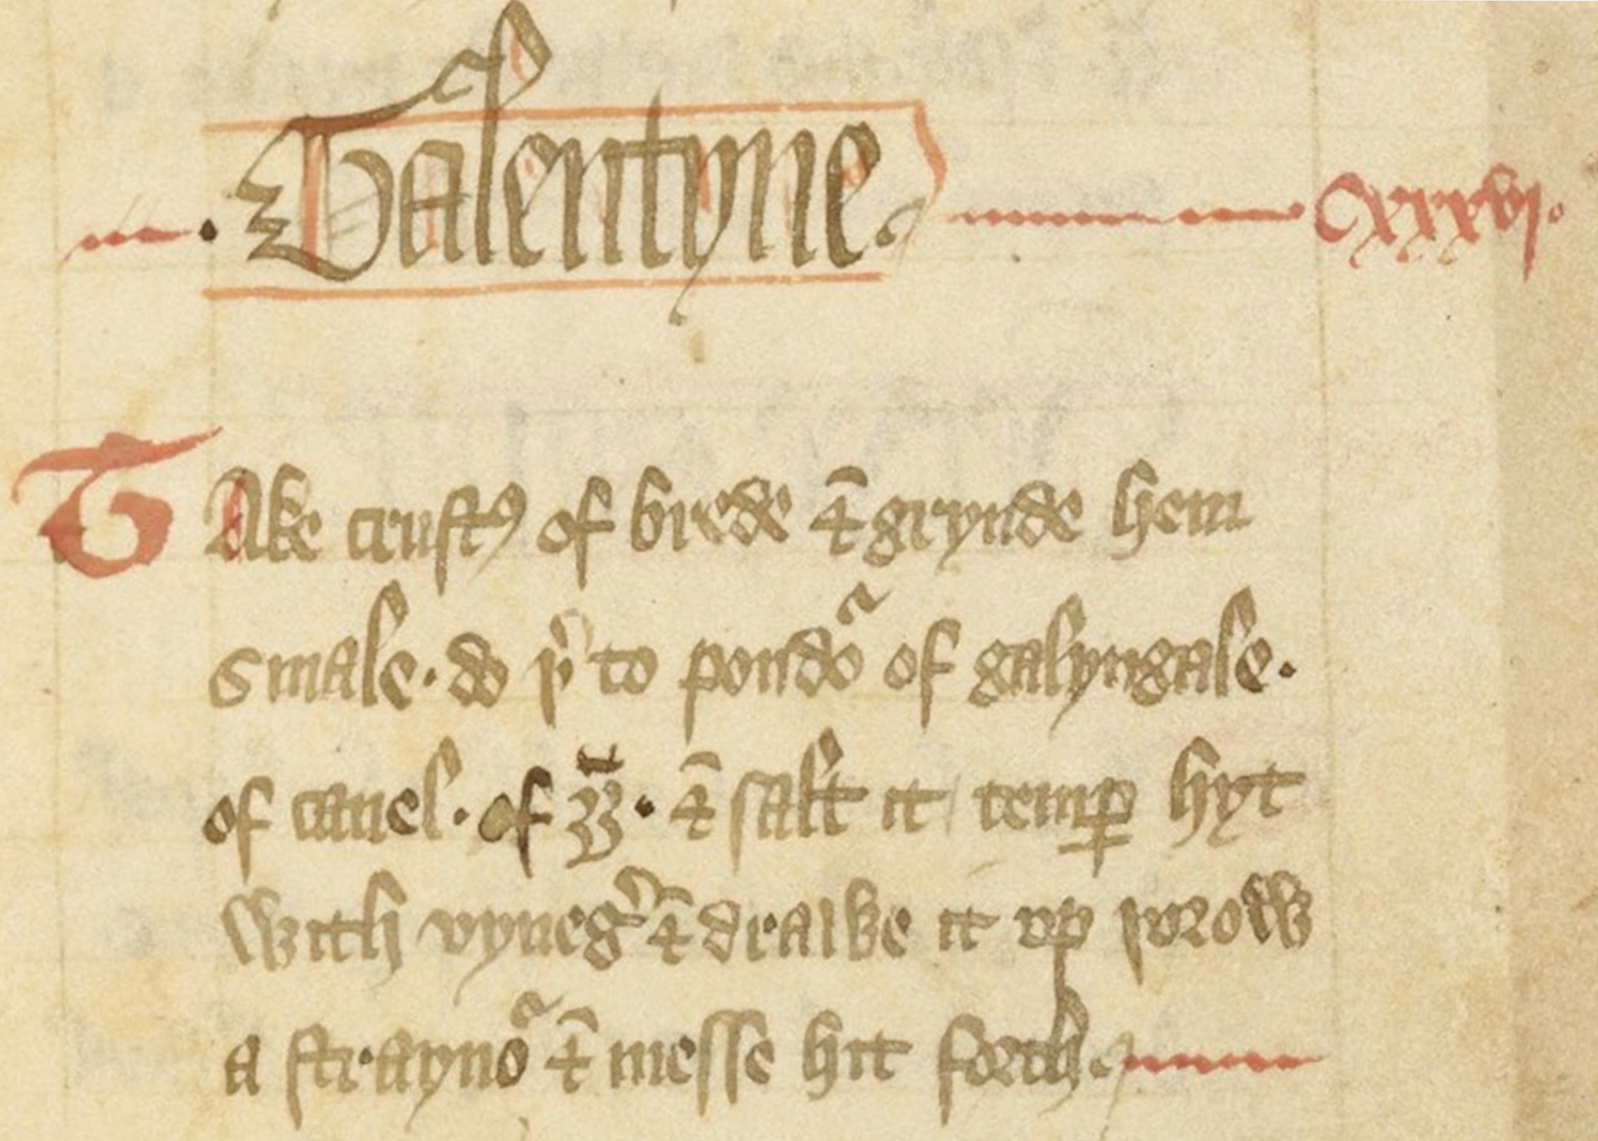 Galentyne. Cxxxvj.
TAke crustꝭ of brede ⁊ grynde hem
smale. do þ͛ to poudo᷑ of galyngale.
of canel. of gȳg. ⁊ salt it temꝑ hyt
with vyneg͛ ⁊ drawe it vp þorow
a strayno᷑ ⁊ messe hit forth.